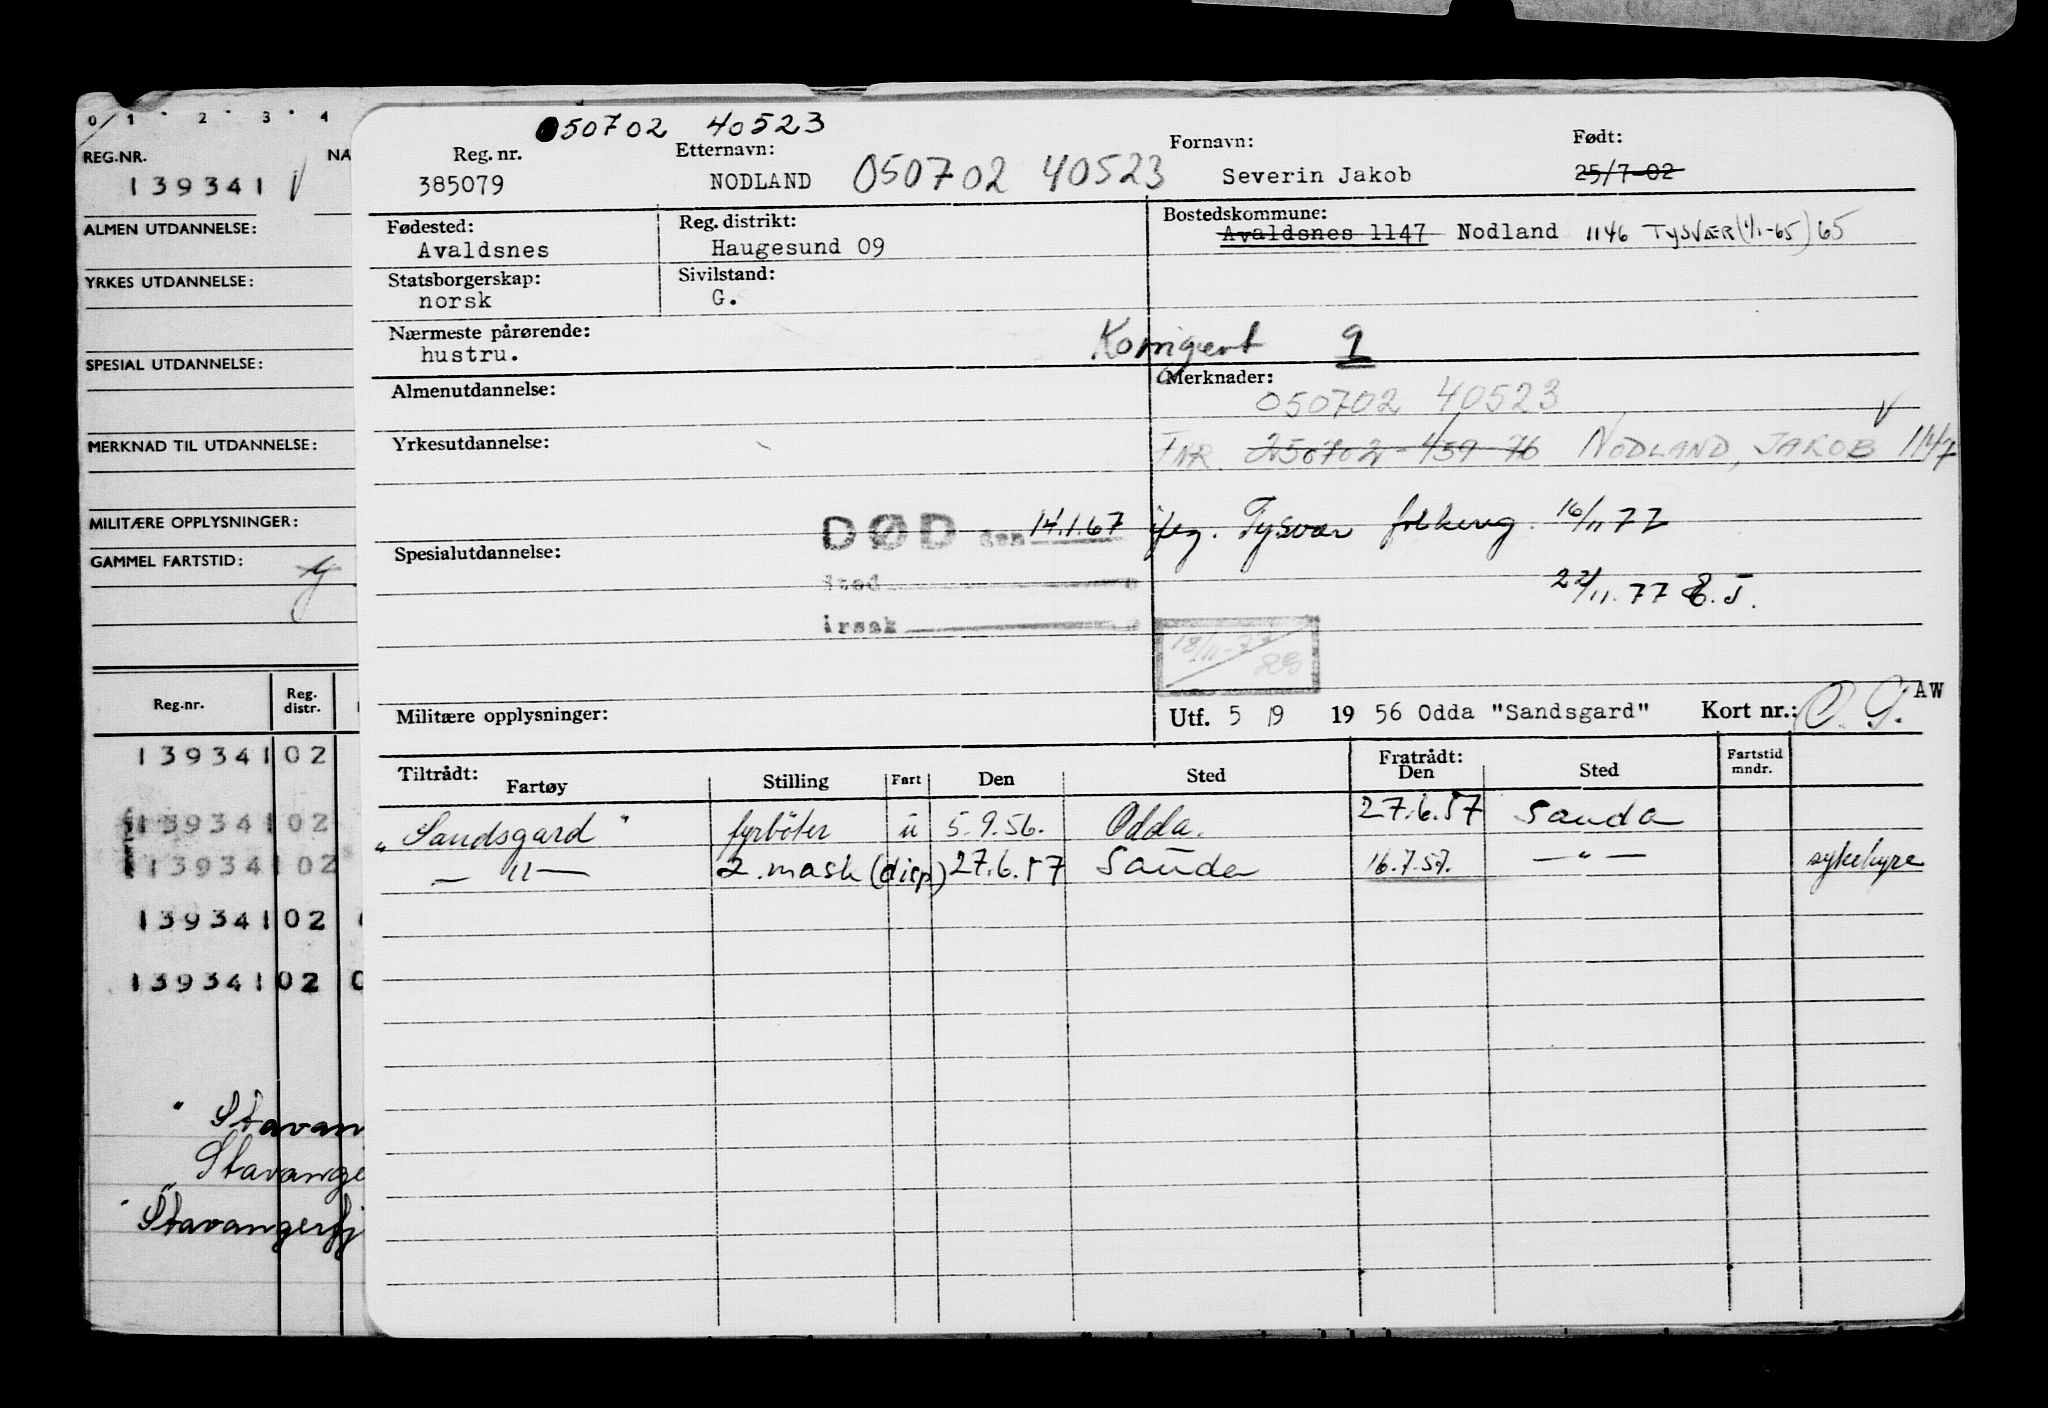 0 1 2 3 4
REG.NR. NA
139341 V
ALMEN UTDANNELSE:
YRKES UTDANNELSE:
SPESIAL UTDANNELSE:
MERKNAD TIL UTDANNELSE:
MILITÆRE OPPLYSNINGER:
GAMMEL FARTSTID:
Reg.nr. Reg. distr.
139341 02
139341 02
139341 02
139341 02
139341 02 0
" Stavan
Stavange
" Stavangerfj
050702 40523
Reg. nr. Etternavn: Fornavn: Født:
385079 NODLAND 050702 40523 Severin Jakob 25/7-02
Fødested: Reg. distrikt: Bostedskommune:
Avaldsnes Haugesund 09 Avaldsnes 1147 Nodland 1146 TYSVÆR (1/1-65) 65
Statsborgerskap: Sivilstand:
norsk G.
Nærmeste pårørende:
hustru. Korrigert 9
Almenutdannelse: Merknader:
050702 40523 V
Yrkesutdannelse: FNR. 250702-459 76 NODLAND, JAKOB 1147
DØD den 14.1.67 Tysvær folkereg. 16/11 77
Spesialutdannelse:
sted
22/11.77 E.J.
årsak
18/11-77
Militære opplysninger: Utf. 5 /9 19 56 Odda "Sandsgard" Kort nr.: AW
Tiltrådt: Fratrådt:
Fartøy Stilling Fart Den Sted Den Sted Fartstid mndr.
"Sandsgard" fyrbøter u 5.9.56. Odda. 27.6.57 Sauda
— " — 2. mask (disp) 27.6.57 Sauda 16.7.57. — " — sykehyre